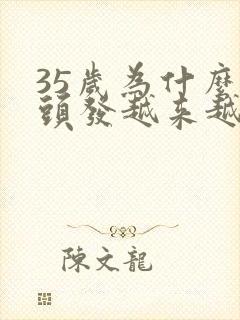 35歲為什麼
頭發越来越
陳文龍